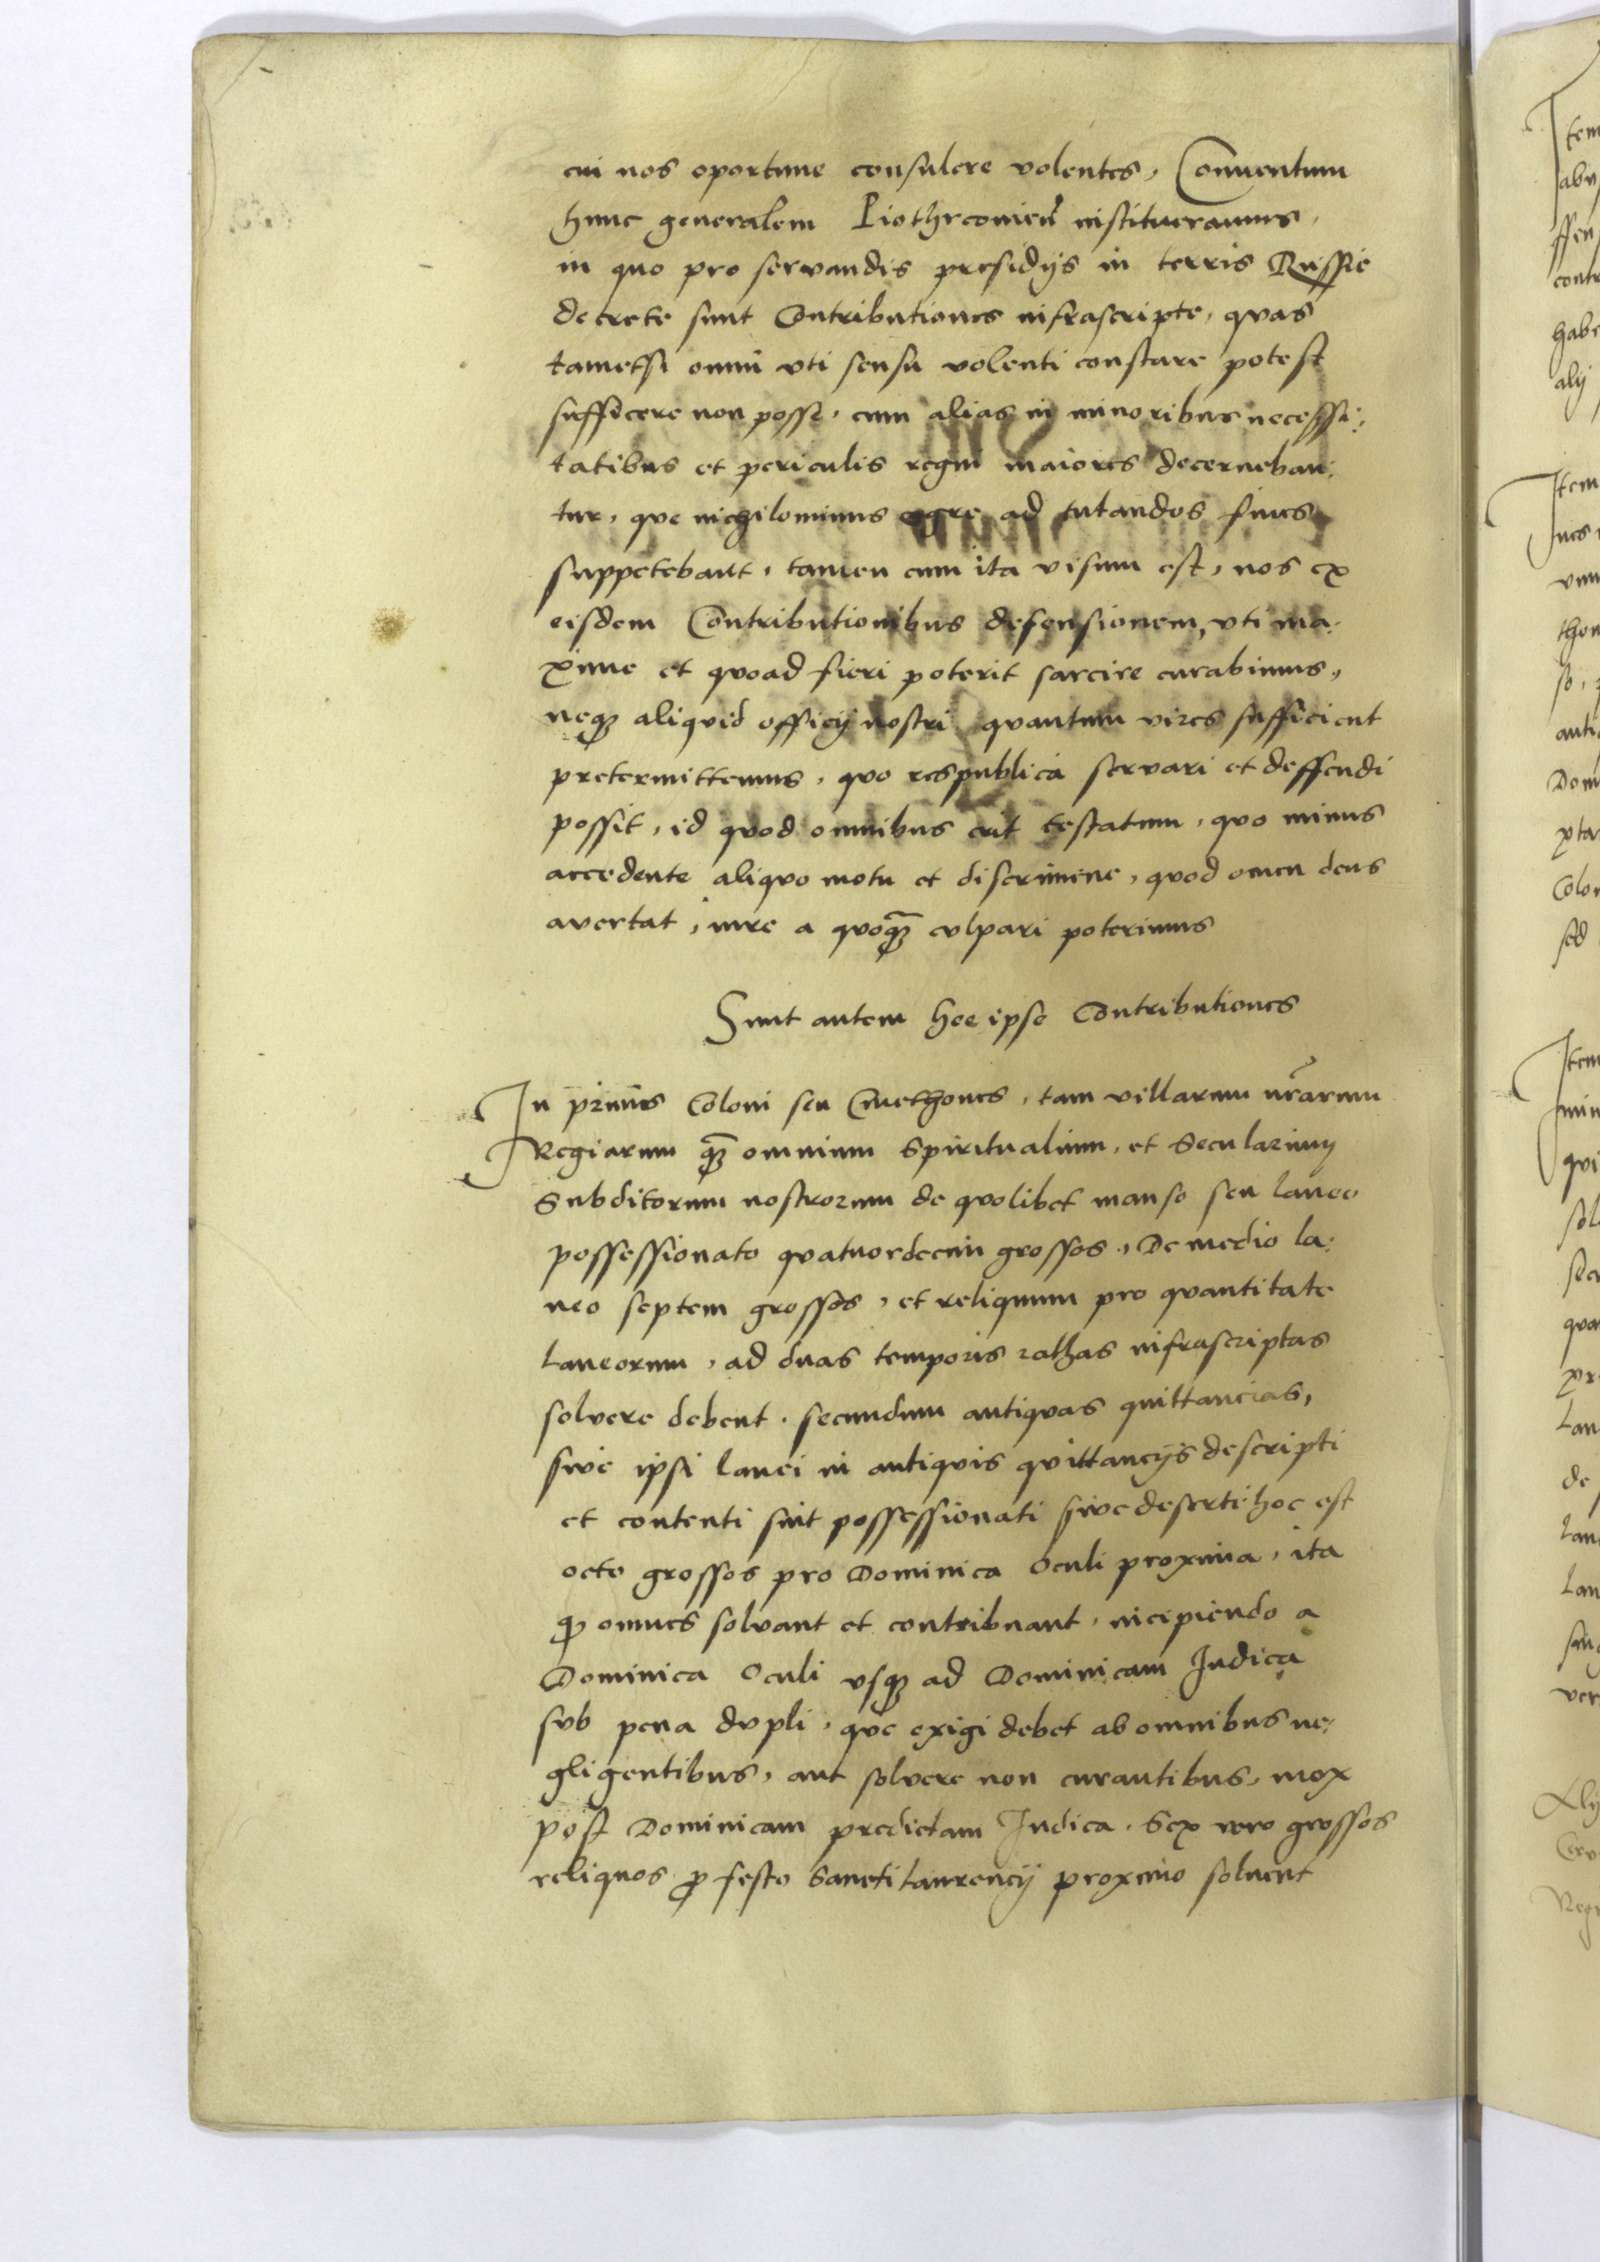 cui nos oportune consulere volentes, Conuentum
hunc generalem Piothrconien̄ institueramus,
in quo pro servandis presidijs in terris Russie
decrete sunt Contributiones infrascripte, quas
tametsi omni vti sensu volenti constare potest
sufficere non posse, cum alias in minoribus necessi:
tatibus et periculis regni maiores decerneban:
tur, que nichilominus egre ad tutandos fines
suppetebant, tamen cum ita visum est, nos ex
eisdem Contributionibus defensionem, vti ma:
xime et quoad fieri poterit sarcire curabimus,
neqȝ aliquid officij nostri quantum vires sufficient
pretermittemus, quo respublica servari et deffendi
possit, id quod omnibus erit testatum, quo minus
accedente aliquo motu et discrimine, quod omen deus
avertat, iure a quoqȝ̄ culpari poterimus
Sunt autem hee ipse Contributiones
In primis Coloni seu Cmethones, tam villarum nr̄arum
Regiarum qȝ̄ omnium Spiritualium, et Secularium
Subditorum nostrorum de quolibet manso seu laneo
possessionato quatuordecim grossos, De medio la:
neo septem grossos, et reliquum pro quantitate
Laneorum, ad duas temporis rathas infrascriptas
solvere debent. secundum antiquas quittancias,
sive ipsi lanei in antiquis quittancijs descripti
et contenti sint possessionati sive deserti hoc est
octo grossos pro Dominica Oculi proxima, ita
ꝙ omnes solvant et contribuant, incipiendo a
Dominica Oculi vsqȝ ad Dominicam Iudica
sub pena dupli, que exigi debet ab omnibus ne:
gligentibus, aut solvere non curantibus, mox
post Dominicam predictam Iudica. Sex vero grossos
reliquos ꝓ festo Sancti Laurencij proximo soluent